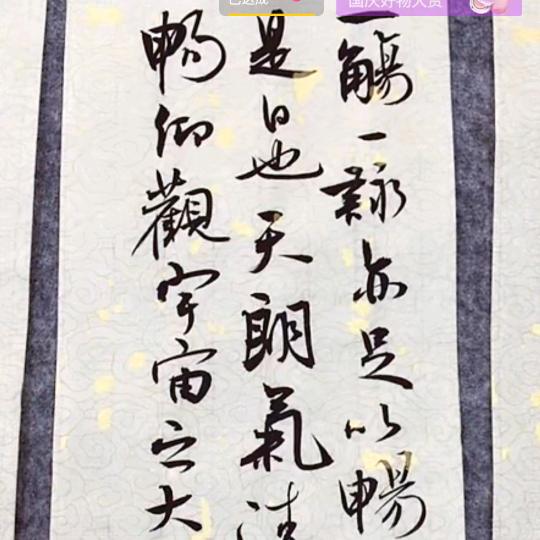 已达成
国庆好物大赏
一觴一詠亦足以暢
是日也天朗氣清
暢仰觀宇宙之大